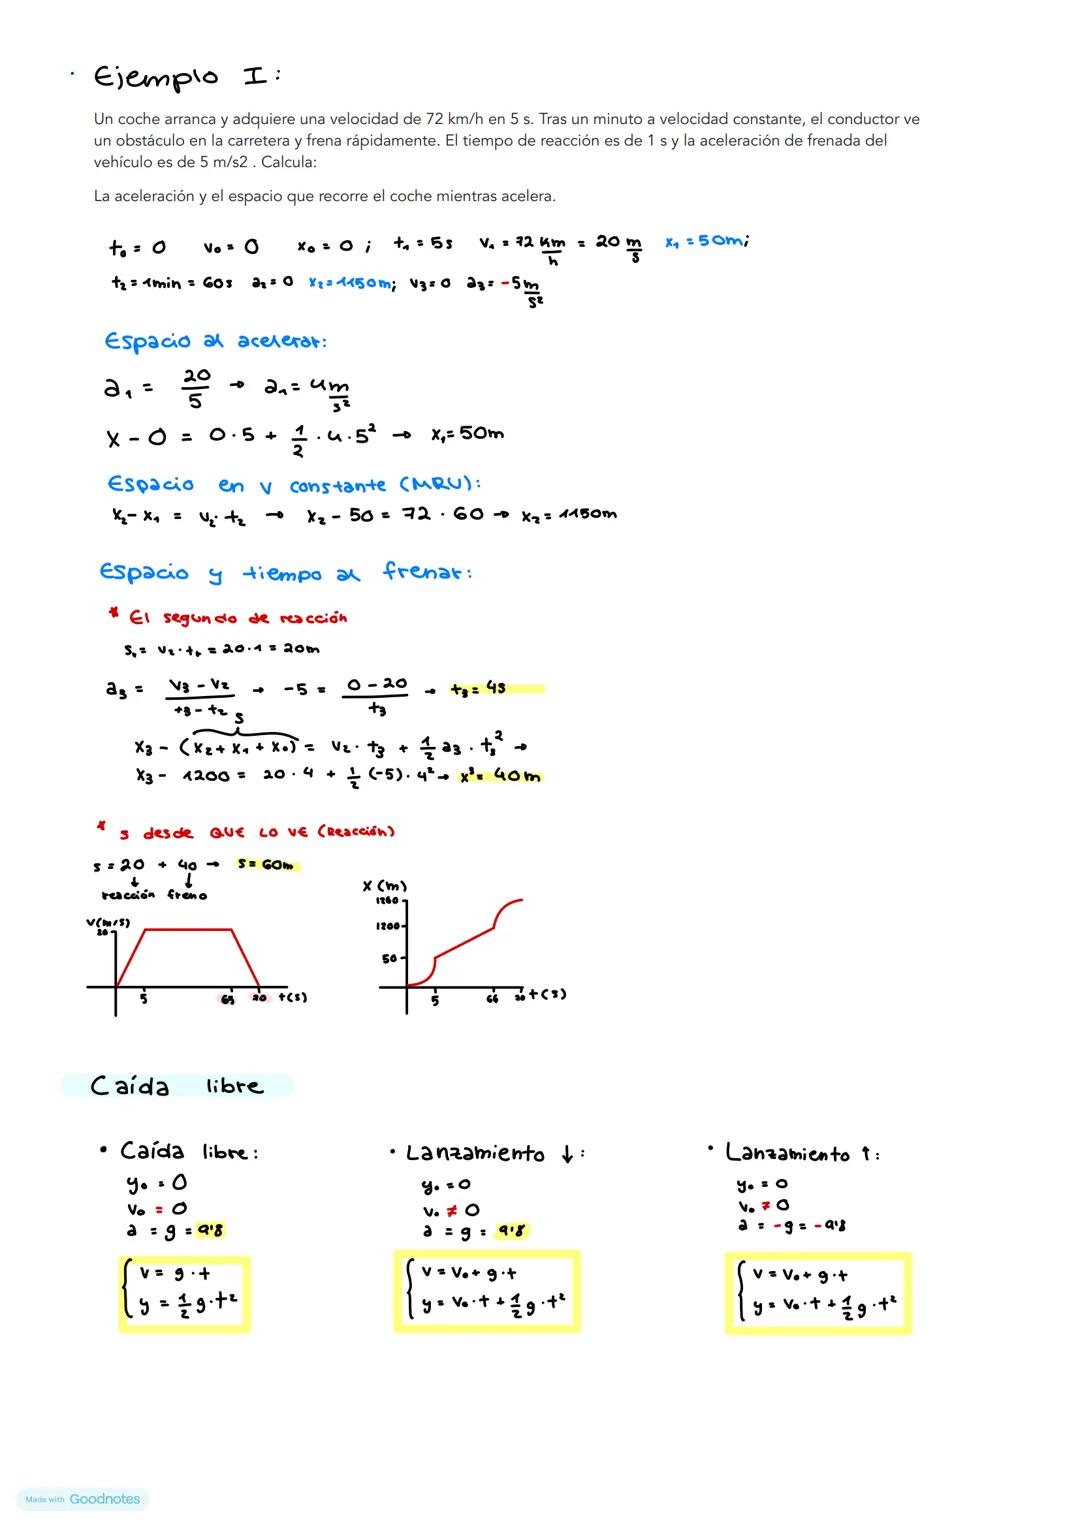 · Ejemplo I:
Un coche arranca y adquiere una velocidad de 72 km/h en 5 s. Tras un minuto a velocidad constante, el conductor ve
un obstáculo en la carretera y frena rápidamente. El tiempo de reacción es de 1 s y la aceleración de frenada del
vehículo es de 5 m/s2 . Calcula:
La aceleración y el espacio que recorre el coche mientras acelera.
t₀ = 0 v₀ = 0 x₀ = 0 ; t₁ = 5s V₁ = 72 km/h = 20 m/s x₁ = 50m;
t₂ = 1min = 60s a₂ = 0 x₂ = 1150m; v₃ = 0 a₃ = -5 m/s²
Espacio al acelerar:
a₁ = 20/5 → a₁ = 4 m/s²
x - 0 = 0·5 + 1/2 · 4 · 5² → x₁ = 50m
Espacio en v constante (MRU):
x₂ - x₁ = v₂ · t₂ → x₂ - 50 = 72 · 60 → x₂ = 1150m
Espacio y tiempo al frenar:
* El segundo de reacción
s₁ = v₂ · t₁ = 20·1 = 20m
a₃ = (v₃ - v₂)/(t₃ - t₂) → -5 = (0 - 20)/t₃ → t₃ = 4s
s
x₃ - (x₂ + x₁ + x₀) = v₂ · t₃ + 1/2 a₃ · t₃² →
x₃ - 1200 = 20 · 4 + 1/2 (-5) · 4² → x³ = 40m
* s desde QUE LO VE (Reacción)
s = 20 + 40 → s = 60m
↓ ↓
reacción freno
V(m/s)
20
5 65 70 t(s)
X (m)
1260
1200
50
5 66 70 t(s)
Caída libre
• Caída libre:
y₀ = 0
v₀ = 0
a = g = 9'8
{ v = g · t
y = 1/2 g · t²
• Lanzamiento ↓:
y₀ = 0
v₀ ≠ 0
a = g = 9'8
{ v = v₀ + g·t
y = v₀·t + 1/2 g·t²
• Lanzamiento ↑:
y₀ = 0
v₀ ≠ 0
a = -g = -9'8
{ v = v₀ + g·t
y = v₀·t + 1/2 g·t²
Made with Goodnotes